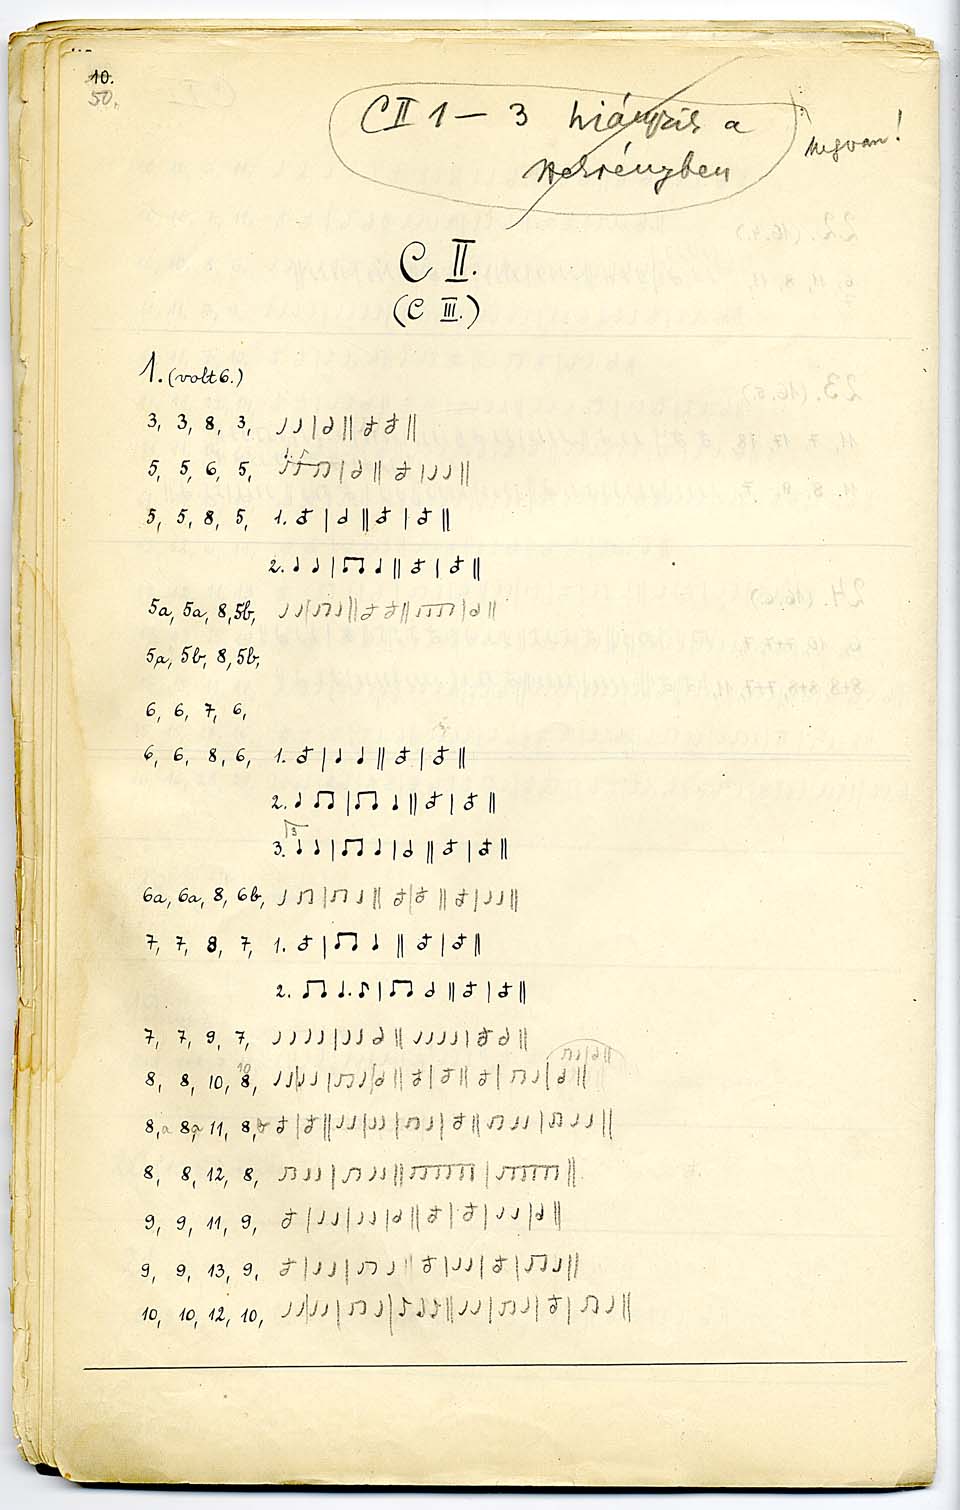 10.
50.
C II 1 – 3 hiányzik a
szekrényben
Megvan!
C II.
(C III.)
1. (volt 6.)
3, 3, 8, 3,
5, 5, 6, 5,
5, 5, 8, 5, 1.
2.
5a, 5a, 8, 5b,
5a, 5b, 8, 5b,
6, 6, 7, 6,
6, 6, 8, 6, 1.
2.
3
3.
6a, 6a, 8, 6b,
7, 7, 8, 7, 1.
2.
7, 7, 9, 7,
10
8, 8, 10, 8,
8,a 8,a 11, 8,b
8, 8, 12, 8,
9, 9, 11, 9,
9, 9, 13, 9,
10, 10, 12, 10,